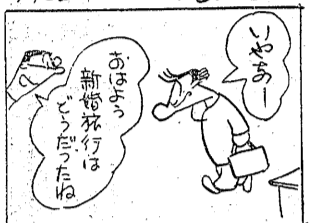 いやあー
おはよう
新婚旅行は
どうだったね